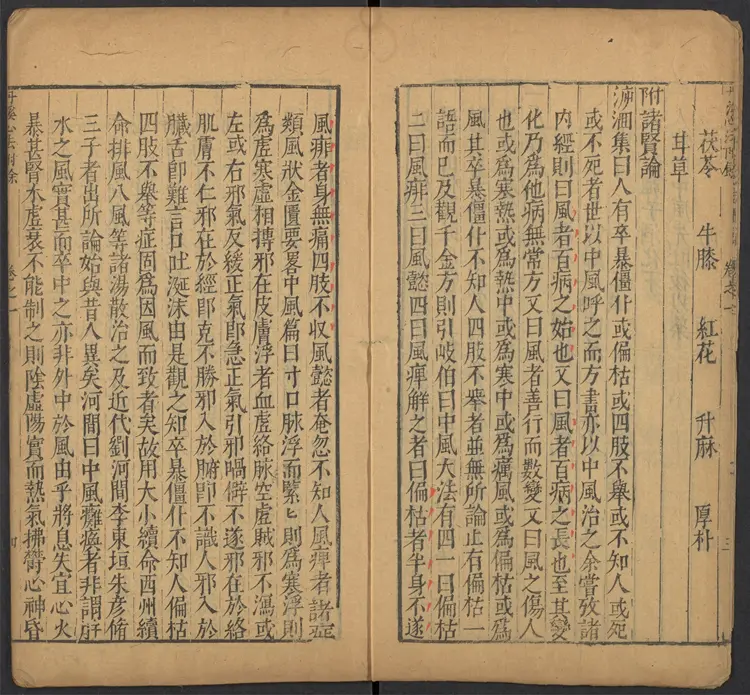 茯苓 牛膝 紅花 升麻 厚朴
耳草
附諸賢論
泝洄集曰人有卒暴僵仆或偏枯或四肢不舉或不知人或死
或不死者世以中風呼之而方書亦以中風治之余嘗攷諸
内經則曰風者百病之始也又曰風者百病之長也至其變
化乃爲他病無常方又曰風者善行而數變又曰風之傷人
也或爲寒熱或爲熱中或爲寒中或爲癘風或爲偏枯或爲
風其卒暴僵仆不知人四肢不舉者並無所論止有偏枯一
語而已及觀千金方則引岐伯曰中風大法有四一曰偏枯
二曰風痱三曰風懿四曰風痺解之者曰偏枯者半身不遂
風痱者身無痛四肢不収風懿者奄忽不知人風痺者諸痺
類風狀金匱要畧中風篇曰寸口脉浮而緊〻則爲寒浮則
爲虚寒虚相摶邪在皮膚浮者血虚絡脉空虚賊邪不瀉或
左或右邪氣反緩正氣卽急正氣引邪喎僻不遂邪在於絡
肌膚不仁邪在於經卽㞹不勝邪入於腑卽不識人邪入於
臟舌卽難言口吐涎沫由是觀之知卒暴僵仆不知人偏枯
四肢不舉等症固爲因風而致者矣故用大小續命西州續
命排風八風等諸湯散治之及近代劉河間李東垣朱彦脩
三子者出所論始與昔人異矣河間曰中風癱瘓者非謂肝
水之風實甚而卒中之亦非外中於風由乎將息失宜心火
暴甚腎水虚衰不能制之則陰虚陽實而熱氣拂鬱心神昏